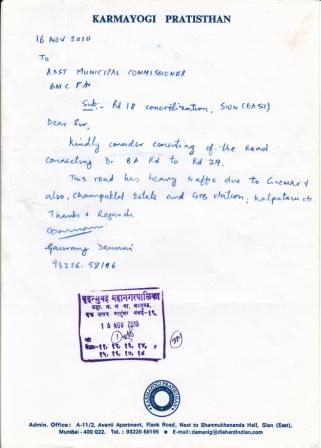 KARMAYOGI PRATISTHAN
16 NOV 2010
To
ASST MUNICIPAL COMMISSIONER
BMC F/N
Sub:- Rd 18 concretization, SION (EAST)
Dear Sir,
Kindly consider concreting of the Road
connecting Dr BA Rd to Rd 29.
This road has heavy traffic due to Cinemax &
also, Champaklal Estate and GTB station, Kalpataru etc.
Thanks & Regards
Gaurang Damani
93226-58146
बृहन्मुंबई महानगरपालिका
16 NOV 2010
KARMAYOGI PRATISTHAN
Admin. Office : A-11/2, Avanti Apartment, Flank Road, Next to Shanmukhananda Hall, Sion (East),
Mumbai - 400 022. Tel. : 93226 58146 • E-mail : damanig@diehardindian.com